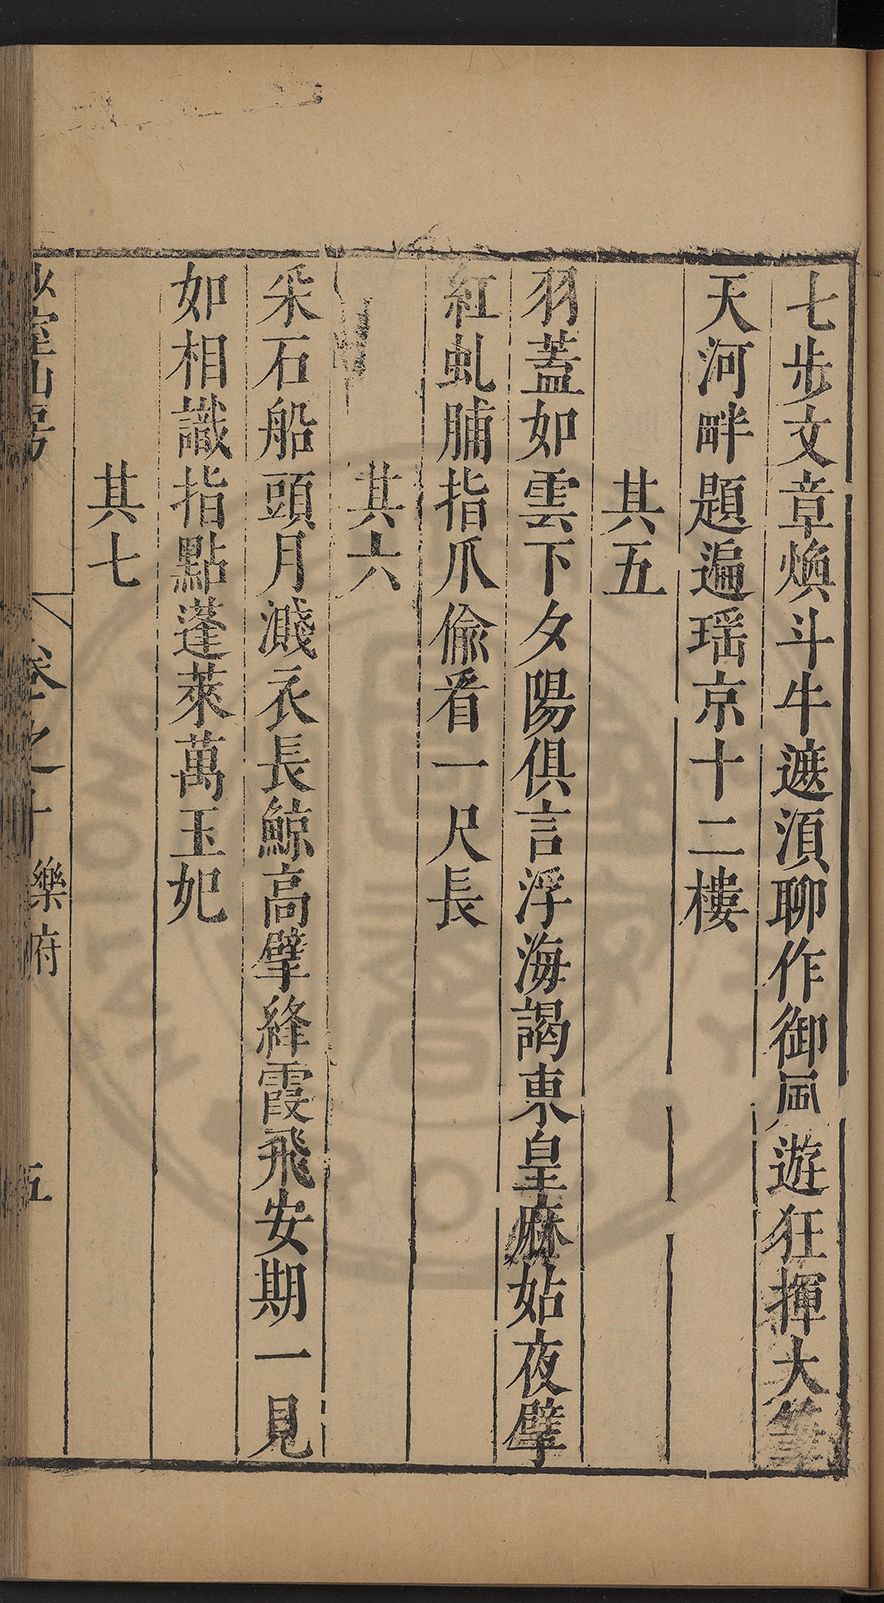 七步文章煥斗牛遮湏聊作御風遊狂揮大筆
天河畔題遍瑶京十二樓
其五
羽蓋如雲下夕陽俱言浮海謁東皇麻姑夜擘
紅虬脯指爪偸看一尺長
其六
采石船頭月濺衣長鯨高擘絳霞飛安期一見
如相識指點蓬萊萬玉妃
其七
少室山房
卷之十
樂府
五